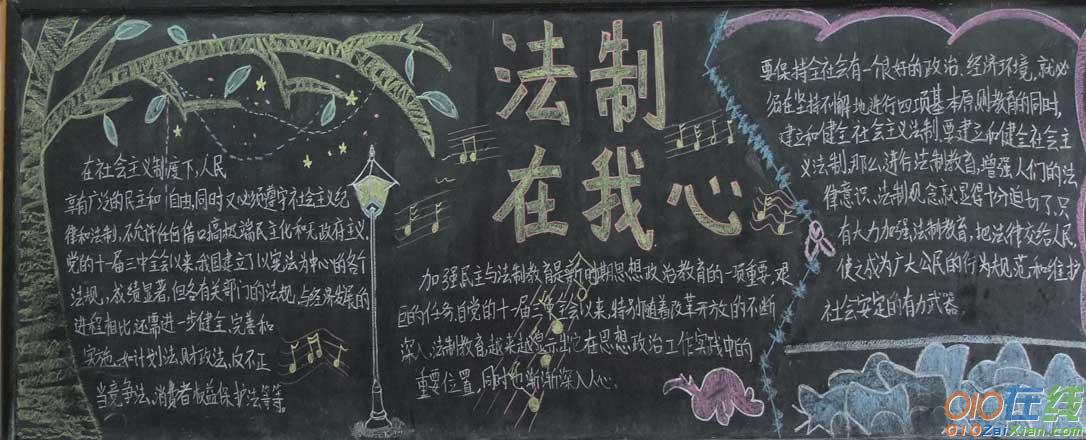 法制
在我心
在社会主义制度下,人民
享有广泛的民主和自由,同时又必须遵守社会主义纪
律和法制,不允许任何借口搞极端民主化和无政府主义,
党的十一届三中全会以来,我国建立了以宪法为中心的各个
法规,成绩显著,但各有关部门的法规,与经济发展的
进程相比还需进一步健全,完善和
实施,如计划法,财政法,反不正
当竞争法,消费者权益保护法等等。
加强民主与法制教育是新时期思想政治教育的一项重要,艰
巨的任务,自党的十一届三中全会以来,特别随着改革开放的不断
深入,法制教育越来越显示出它在思想政治工作实践中的
重要位置,同时也渐渐深入人心。
要保持全社会有一个很好的政治、经济环境,就必
须在坚持不懈地进行四项基本原则教育的同时,
建立和健全社会主义法制,要建立和健全社会主
义法制,那么,进行法制教育,增强人们的法
律意识、法制观念就显得十分迫切了,只
有大力加强法制教育,把法律交给人民,
使之成为广大公民的行为规范和维护
社会安定的有力武器
010在线
010ZaiXian.com